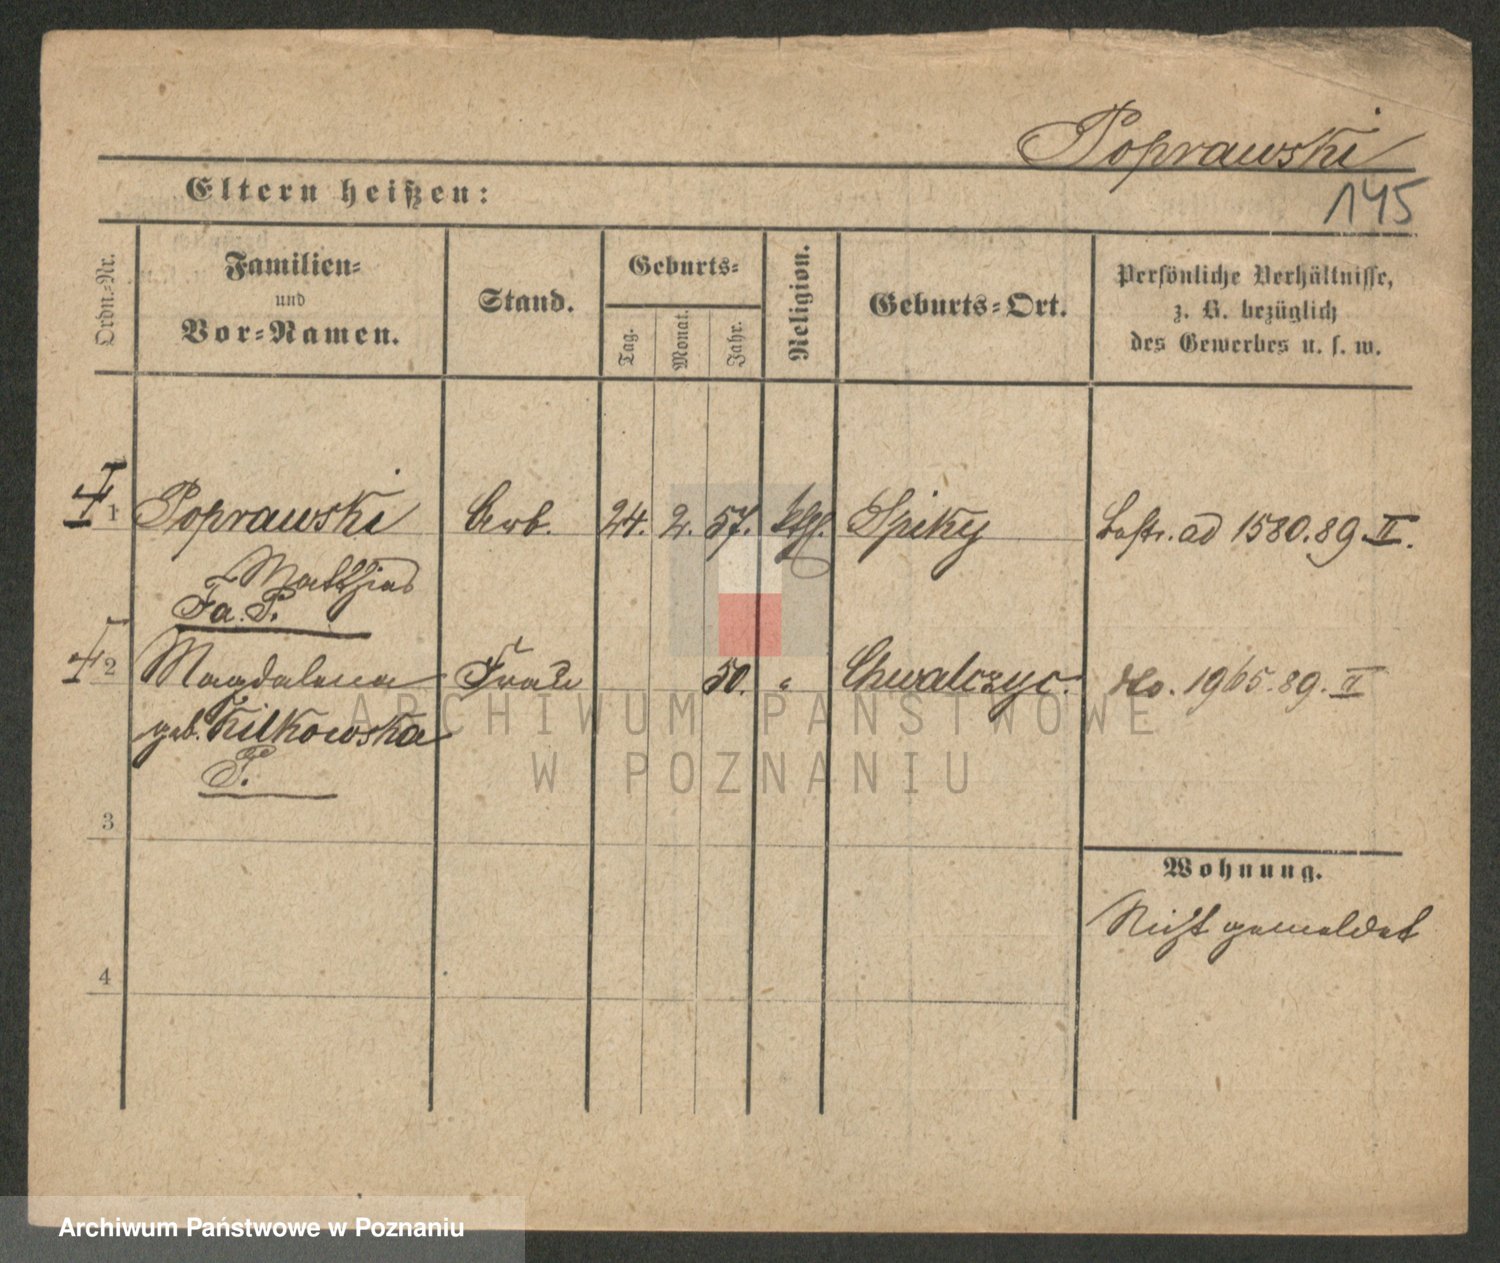 Poprawski
Eltern heißen:
145
Ordn.-Nr.
Familien-
und
Vor-Namen.
Stand.
Geburts-
Tag.
Monat.
Jahr.
Religion.
Geburts-Ort.
Persönliche Verhältnisse,
z. B. bezüglich
des Gewerbes u. s. w.
I
1 Poprawski Arb. 24. 2. 57. kth. Spiky Bestr. ad 1580.89.II.
Matthias
Fa. P.
2 Magdalena Frau 50. " Chwalczyc. do. 1965.89.II
geb. Kilkowska
P.
ARCHIWUM PAŃSTWOWE
W POZNANIU
3
Wohnung.
Nicht gemeldet
4
Archiwum Państwowe w Poznaniu